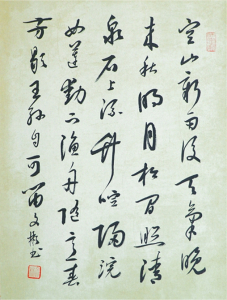 空山新雨後天氣晚
來秋明月松間照清
泉石上流竹喧歸浣
女蓮動下漁舟隨意春
芳歇王孫自可留 文彬书